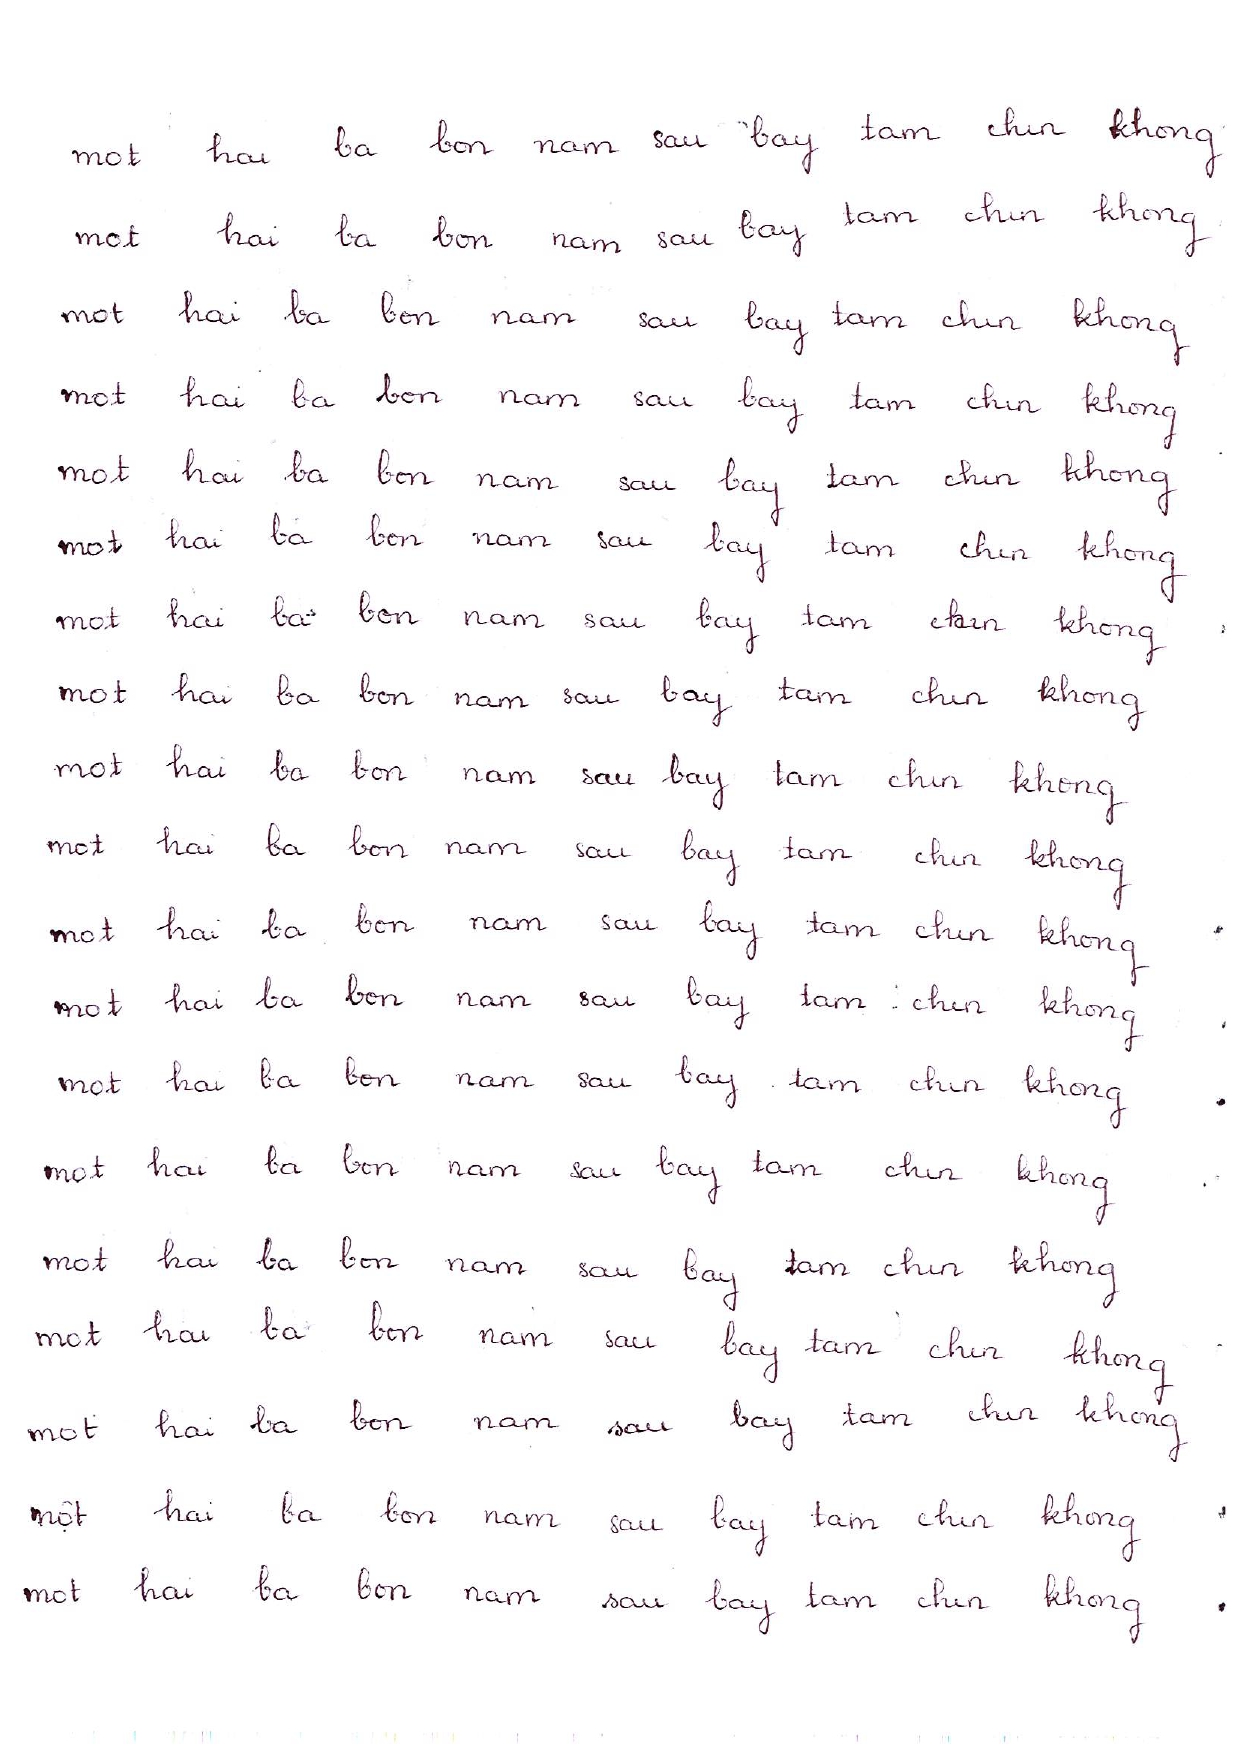 mot hai ba bon nam sau bay tam chin khong
mot hai ba bon nam sau bay tam chin khong
mot hai ba bon nam sau bay tam chin khong
mot hai ba bon nam sau bay tam chin khong
mot hai ba bon nam sau bay tam chin khong
mot hai ba bon nam sau bay tam chin khong
mot hai ba bon nam sau bay tam chin khong
mot hai ba bon nam sau bay tam chin khong
mot hai ba bon nam sau bay tam chin khong
mot hai ba bon nam sau bay tam chin khong
mot hai ba bon nam sau bay tam chin khong
mot hai ba bon nam sau bay tam chin khong
mot hai ba bon nam sau bay tam chin khong
mot hai ba bon nam sau bay tam chin khong
mot hai ba bon nam sau bay tam chin khong
mot hai ba bon nam sau bay tam chin khong
mot hai ba bon nam sau bay tam chin khong
một hai ba bon nam sau bay tam chin khong
mot hai ba bon nam sau bay tam chin khong